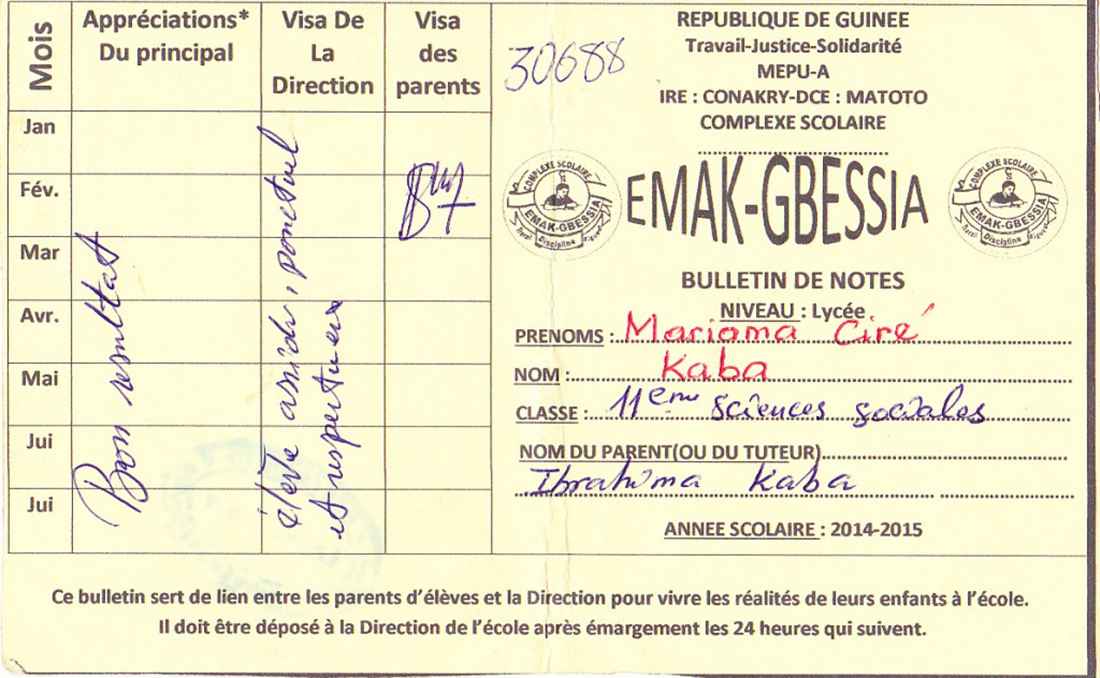 Mois
Appréciations*
Du principal
Visa De
La
Direction
Visa
des
parents
Jan
Fév.
Mar
Avr.
Mai
Jui
Jui
Bon resultat
élève assidu, ponctuel
et respectueux
30688
REPUBLIQUE DE GUINEE
Travail-Justice-Solidarité
MEPU-A
IRE : CONAKRY-DCE : MATOTO
COMPLEXE SCOLAIRE
COMPLEXE SCOLAIRE
EMAK-GBESSIA
Travail Discipline
EMAK-GBESSIA
COMPLEXE SCOLAIRE
EMAK-GBESSIA
Travail Discipline
BULLETIN DE NOTES
NIVEAU : Lycée
PRENOMS : Mariama Ciré
NOM : Kaba
CLASSE : 11eme sciences sociales
NOM DU PARENT(OU DU TUTEUR)
Ibrahima Kaba
ANNEE SCOLAIRE : 2014-2015
Ce bulletin sert de lien entre les parents d'élèves et la Direction pour vivre les réalités de leurs enfants à l'école.
Il doit être déposé à la Direction de l'école après émargement les 24 heures qui suivent.